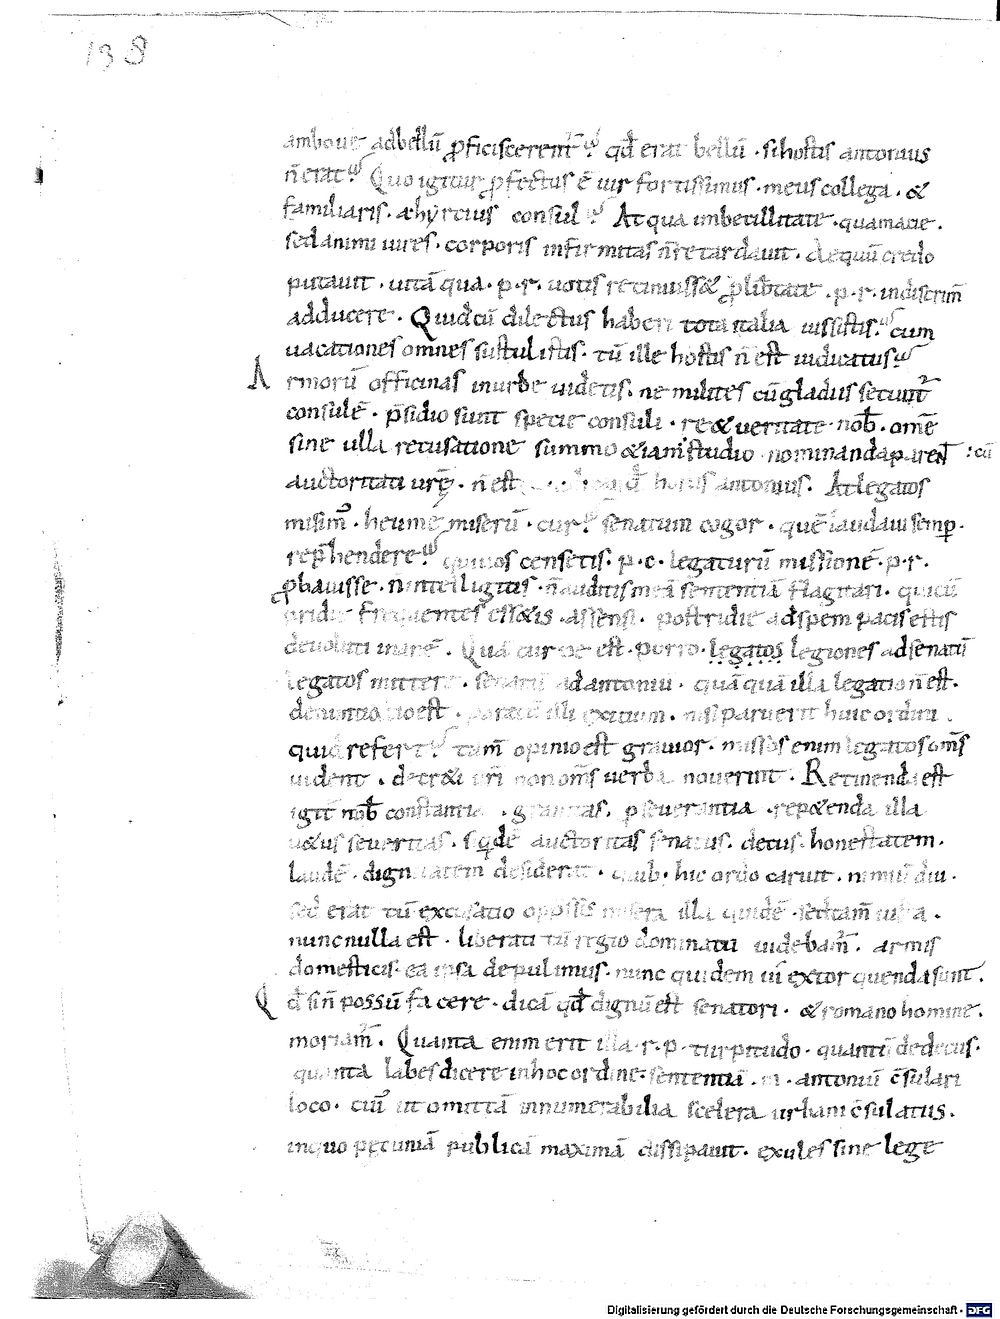 138
amboue adbellū ꝓficiscerent̄ ? qd̄ erat bellū · sihostis antonius
n̄ erat ? Quo igitur ꝓfectus ē uir fortissimus · meus collega · &
familiaris · ahyrcius consul ? At qua imbecillitate · quamacie ·
sed animi uires · corporis infirmitas n̄ retardauit · Aequū credo
putauit · uitā qua · p · r · uotis retinuiss& ꝓ lib̄tate · p · r · indiscrim̄
adducere · Quid cū dilectus haberi tota italia iussistis · cum
uacationes omnes sustulistis · tū ille hostis n̄ est iudicatus ?
Armorū officinas inurbe uidetis · ne milites cū gladiis secunt̄
consulē · p̄sidio sunt specie consuli · re & ueritate · nob̄ · om̄e
sine ulla recusatione summo &iam studio nominanda paren̄t : cū
auctoritati urē · n̄ est hostis antonius · At legatos
misim̄ · heu me miserū · cur ? senatum cogor · quē laudaui semp̄ ·
rep̄hendere ? quid uos censetis · p · c · legatorū missionē · p · r ·
ꝓbauisse · n intellugitis · n̄ auditis meā sententiā flagitari · quicū
pridie frequentes ess&is · assensi · postridie ad spem pacis estis
deuoluti inanē · Quā turpe est · porro · legatos legiones ad senatū
legatos mittere · senatū ad antoniū · quā quā illa legatio n̄ est ·
denuntiatio est · paratū illi exitium · nisi paruerit huic ordini ·
quid refert ? tam̄ opinio est grauior · missos enim legatos om̄s
uident · decr&i n̄ri non om̄s uerba nouerint · Retinenda est
igit̄ nob̄ constantia · grauitas · ꝑseuerantia · rep&enda illa
u&us seueritas · siqdē auctoritas senatus · decus · honestatem ·
laudē · dignitatem desiderat · quib; hic ordo caruit · nimiū diu ·
sed erat tū excusatio oppssis misera illa quidē · sed tam̄ iusta ·
nunc nulla est · liberati tū regio dominatu uidebam̄ · armis
domesticis · ea ipsa depulimus · nunc quidem ui extorquenda sunt ·
Qd̄ si n̄ possū facere · dicā qd̄ dignū est senatori · & romano homine ·
moriam̄ · Quanta enim erit illa · r · p · turpitudo · quantū dedecus ·
quanta labes dicere inhoc ordine · sententiā · m · antoniū c̄sulari
loco · cui᷒ ut omittā innumerabilia scelera urbani c̄sulatus ·
inquo pecuniā publicā maximā dissipauit · exules sine lege
Digitalisierung gefördert durch die Deutsche Forschungsgemeinschaft - DFG